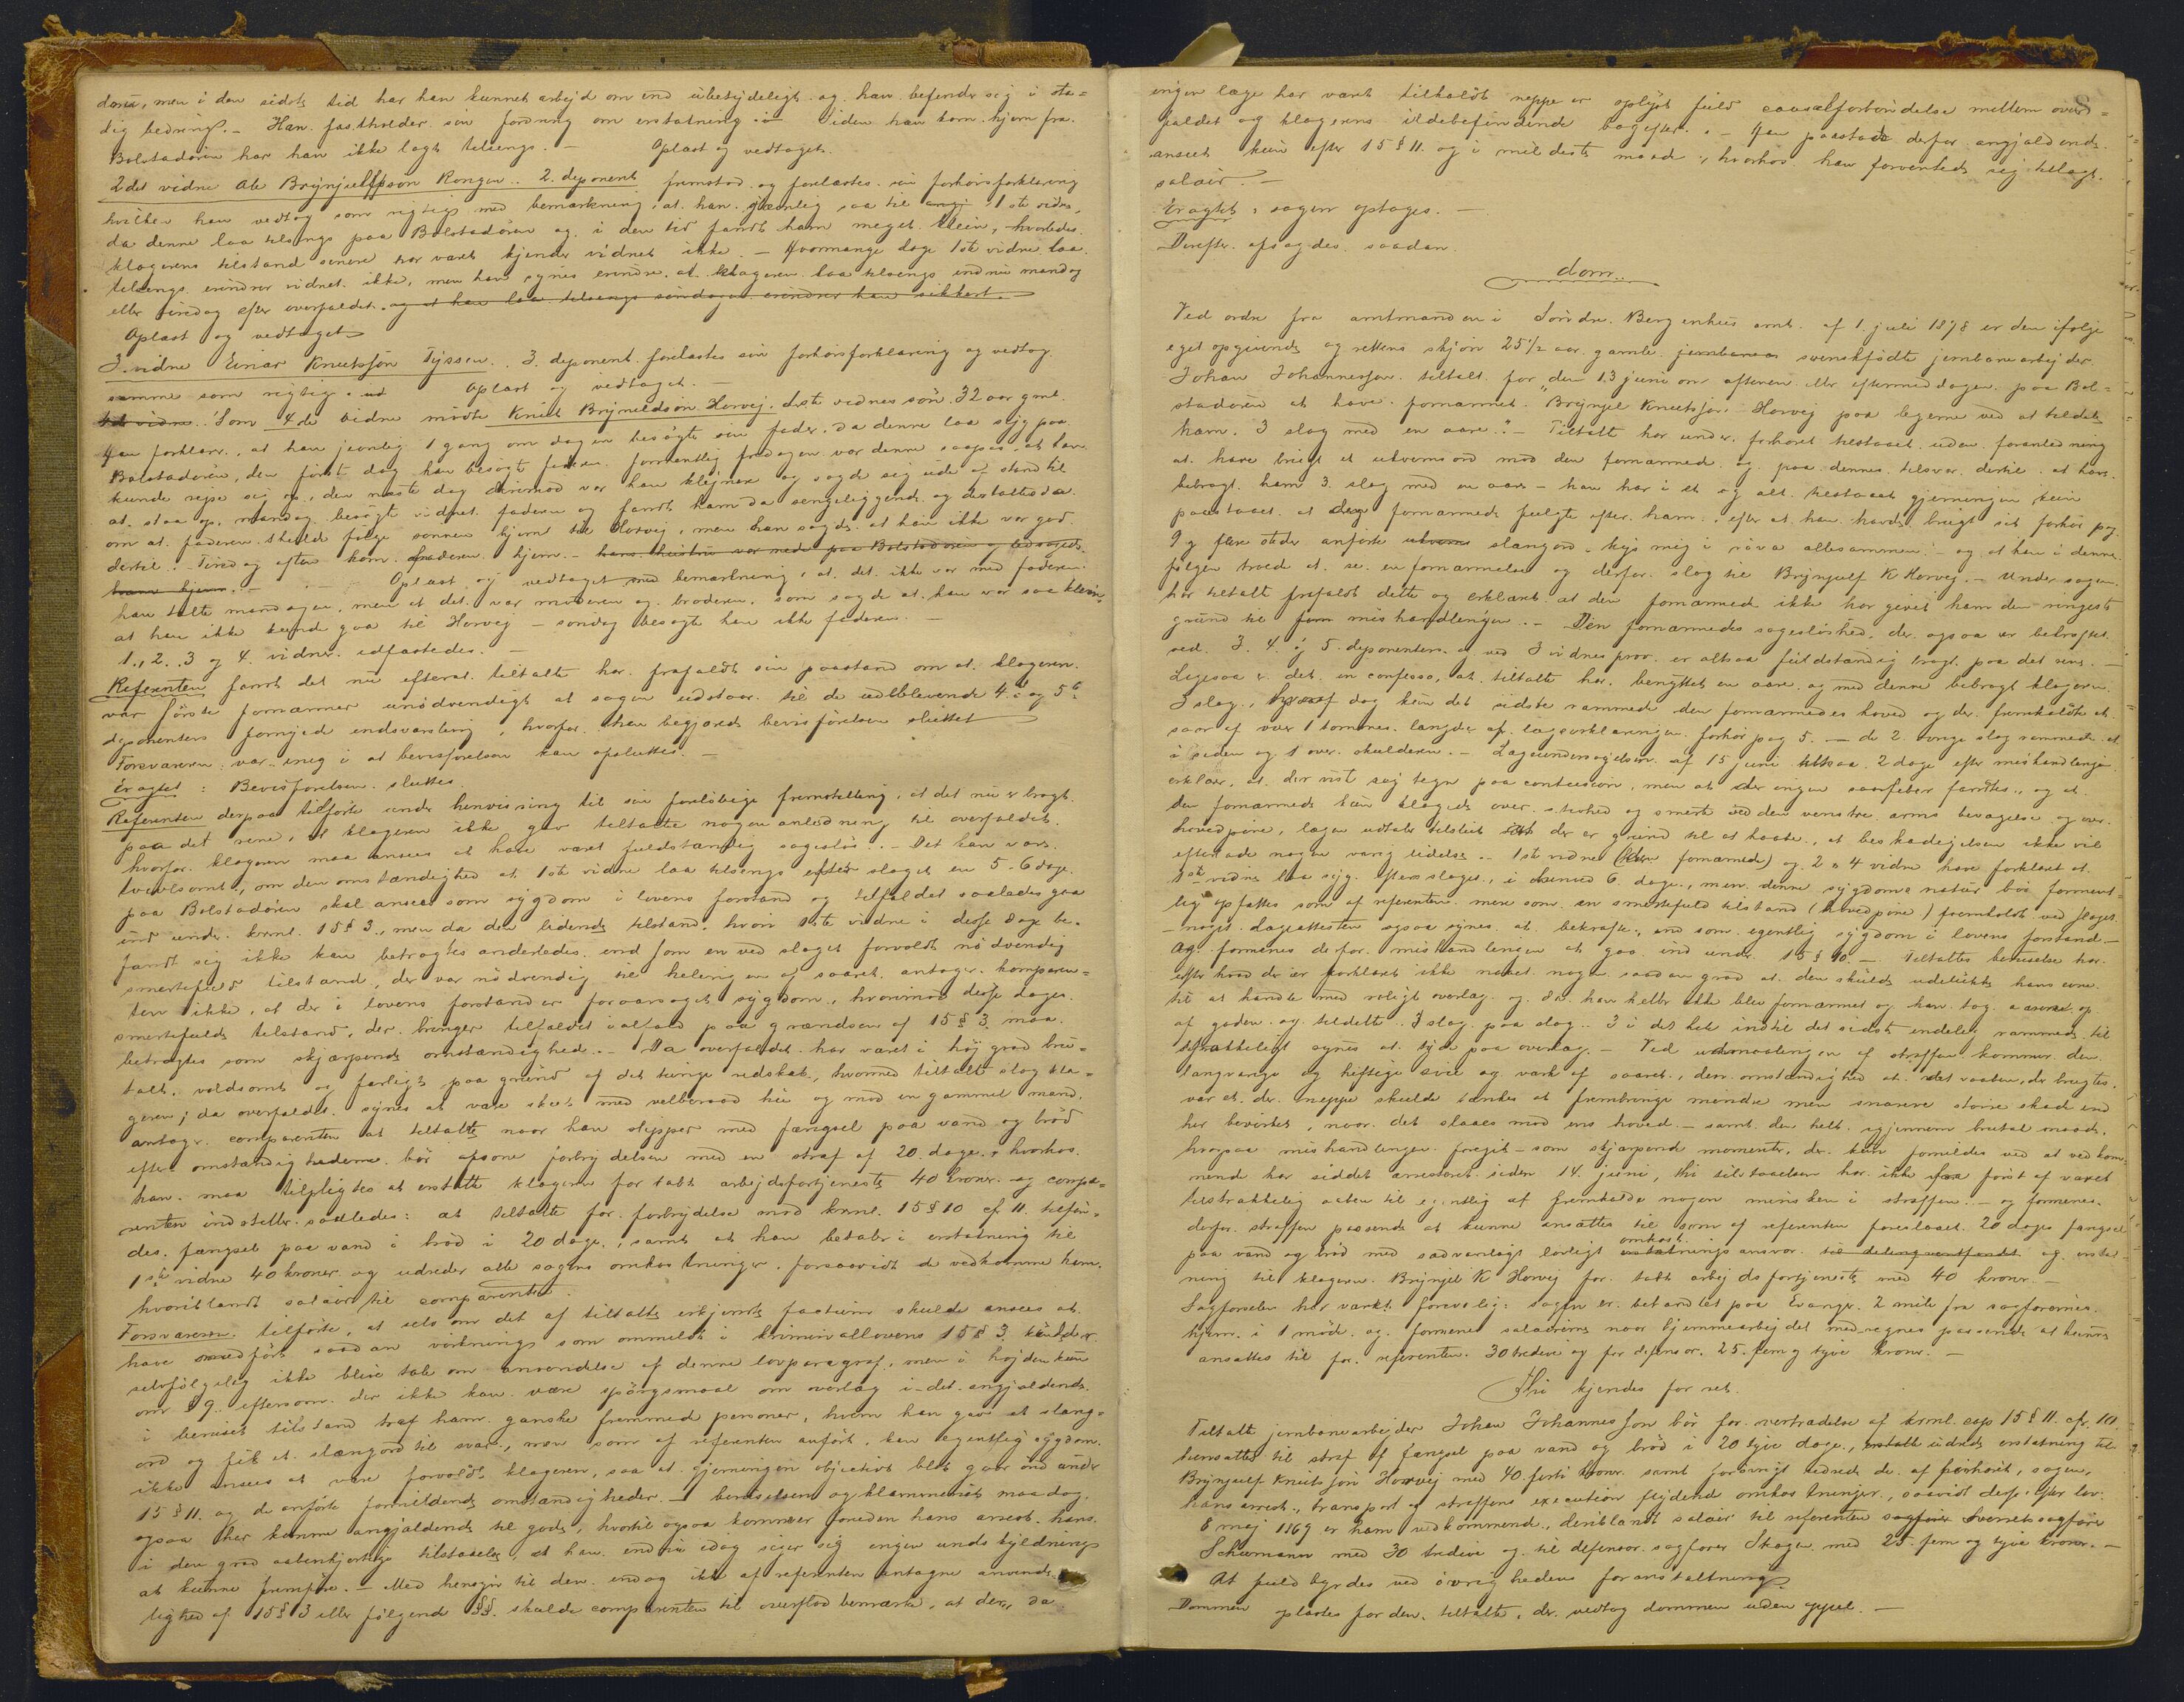 dom, men i den sidste tid har han kunnet arbejd om end ubetydeligt og han befinder sig i sta=
dig bedring. – Han fastholder sin fordring om erstatning. – Siden han kom hjem fra
Bolstadøren har han ikke lagt tilsengs. – Oplæst og vedtaget.
2det vidne Ole Brynjulfssøn Rongen. 2. deponent fremstod og forelæstes sin forhørsforklaring
hvilken han vedtog som rigtig med bemærkning, at han jævnlig saa til 1ste vidne,
da denne laa tilsengs paa Bolstadøren og i den tid fandt ham meget klein, hvorledes
klagerens tilstand senere har været kjender vidnet ikke. – Hvormange dage 1ste vidne laa
tilsengs erindrer vidnet ikke, men han synes erindre, at klageren laa tilsengs endnu mandag
eller tirsdag efter overfaldet. og at han laa tilsengs søndagen erindrer han sikkert. –
Oplæst og vedtaget
3. vidne Einar Knutssøn Tyssen. 3. deponent forelæstes sin forhørsforklaring og vedtog
samme som rigtig. Oplæst og vedtaget. –
Som 4de vidne mødte Knut Brynildsøn Horvej. 1ste vidnes søn. 32 aar gml.
Han forklarer, at han jevnlig 1 gang om dagen besøgte sin fader, da denne laa syg paa
Bolstadøren, den første dag han besøgte faderen formentlig fredagen var denne saapas, at han
kunde rejse sig op, den næste dag derimod var han klejnere og sagde sig ude af stand til
at staa op, mandag besøgte vidnet faderen og fandt ham da sengeliggende og der taltes da
om at faderen skulde følge sønnen hjem til Horvej, men han sagde at han ikke var god
dertil. Tirsdag aften kom faderen hjem. – hans hustru var nede paa Bolstadøren og ledsagede
ham hjem. – Oplæst og vedtaget med bemærkning, at det ikke var med faderen
han talte mandagen, men at det var moderen og broderen, som sagde at han var saa klein,
at han ikke kunde gaa til Horvej – søndag besøgte han ikke faderen. –
1., 2., 3 og 4. vidner edfæstedes. –
Referenten fandt det nu efterat tiltalte har frafaldt sin paastand om at klageren
var første fornærmer unødvendigt at sagen udstaar til de udeblevende 4de og 5te
deponenters fornyede indvarsling, hvorfor han begjærede bevisførelsen sluttet
Forsvareren var enig i at bevisførelsen kan afsluttes. –
Eragtet: Bevisførelsen sluttes
Referenten derpaa tilførte under henvisning til sin foreløbige fremstilling, at det nu er bragt
paa det rene, at klageren ikke gav tiltalte nogen anledning til overfaldet
hvorfor klageren maa ansees at have været fuldstændig sagesløs. – Det kan være
tvivlsomt, om den omstændighed at 1ste vidne laa tilsengs efter slaget en 5-6 dage
paa Bolstadøren skal ansees som sygdom i lovens forstand og tilfældet saaledes gaa
ind under krml. 15 § 3., men da den lidende tilstand, hvori 1ste vidne i disse dage be-
fandt sig ikke kan betragtes anderledes end som en ved slaget forvoldt nødvendig
smertefuld tilstand, der var nødvendig til heling en af saaret, antager komparen=
ten ikke, at der i lovens forstand er foraarsaget sygdom, hvorimod disse dages
smertefulde tilstand, der bringer tilfældet ialfald paa grændsen af 15 § 3. maa
betragtes som skjærpende omstændighed. – Da overfaldet har været i høj grad bru=
talt, voldsomt og farligt paa grund af det tunge redskab, hvormed tiltalte slog kla=
geren; da overfaldet synes at være skeet med velberaad hu og mod en gammel mand,
antager comparenten at tiltalte naar han slipper med fængsel paa vand og brød
efter omstændighederne bør afsone forbrydelsen med en straf af 20 dage, hvorhos
han maa tilpligtes at erstatte klageren for tabt arbejdsfortjeneste 40 kroner og compa=
renten indstiller saaledes: at tiltalte for forbrydelse mod krml. 15 § 10 cf 11. tilfin=
des fængsel paa vand i brød i 20 dage, samt at han betaler i erstatning til
1ste vidne 40 kroner og udreder alle sagens omkostninger, forsaavidt de vedkomme ham,
hvoriblandt salair til comparenten.
Forsvareren tilførte, at selv om det af tiltalte erkjendte factum skulde ansees at
have medført saadan virkning som ommeldt i kriminallovens 15 § 3. kunde der
selvfølgelig ikke blive tale om anvendelse af denne lovparagraf, men i højden kun
om § 9. eftersom der ikke kan være spørgsmaal om overlæg i det angjældende
i beruset tilstand traf ham ganske fremmed personer, hvem han gav et slang-
ord og fik et slængord til svar, men som af referenten anført, kan egentlig sygdom
ikke ansees at være forvoldt klageren, saa at gjerningen objectivt blot gaar ind under
15 § 11. og de anførte formildende omstændigheder. – I beruselsen og klammeriet maa dog
ogsaa her komme angjældende til gode, hvortil ogsaa kommer foruden hans arrest, hans
i den grad aabenhjertige tilstaaelse, at han endnu idag siger sig ingen undskyldning
at kunne fremføre. – Med hensyn til den endog ikke af referenten antagne anvende-
lighed af 15 § 3 eller følgende §§. skulde comparenten til overflod bemærke, at der, da
ingen læge har været tilholdt neppe er oplyst fuld causalforbindelse mellem over=
faldet og klagerens ildebefindende bagefter. – Han paastaar derfor angjældende
anseet kun efter 15 § 11. og i mildeste maade, hvorhos han forventede sig tillagt
salair. –
Eragtet: sagen optages. –
Derefter afsagdes saadan
dom.
Ved ordre fra amtmanden i Søndre Bergenhus amt af 1. juli 1878 er den ifølge
eget opgivende og rettens skjøn 25½ aar gamle svenskfødte jernbanearbejder
Johan Johannessøn tiltalt for „den 13 juni om aftenen eller eftermiddagen paa Bol=
stadøren at have fornærmet Brynjel Knutssøn Horvej paa legeme ved at tildele
ham 3 slag med en aare". – Tiltalt har under forhøret tilstaaet uden foranledning
at have brugt et ukvemsord mod den fornærmede og paa dennes tilsvar dertil at have
bibragt ham 3 slag med en aare – han har i et og alt tilstaaet gjerningen kun
paastaaet at den fornærmede fulgte efter ham, efter at han havde brugt sit forhør pag
9 og flere steder anførte slangord „kys mig i røva allesammen" – og at han i denne
følgen troede at se en fornærmelse og derfor slog til Brynjulf K Horvej. – Under sagen
har tiltalt frafaldt dette og erklæret at den fornærmede ikke har givet ham den ringeste
grund til mishandlingen. – Den fornærmedes sagesløshed, der ogsaa er bekræftet
ved 3. 4. og 5. deponenter og ved 3 vidnesprov er altsaa fuldstændig bragt paa det rene. –
Ligesaa er det in confesso, at tiltalte har benyttet en aare og med denne bibragt klageren
3 slag, hvoraf dog kun det sidste rammede den fornærmedes hoved og der fremkaldte et
saar af over 1 tommes længde cf. lægeerklæringen forhør pag 5. – de 2 øvrige slag rammede et
i siden og 1 over skulderen. – Lægeundersøgelsen af 15 juni altsaa 2 dage efter mishandlingen
erklærer, at der vist sig tegn paa contusion, men at der ingen saarfeber fandtes, og at
den fornærmede kun klagede over stivhed og smerte ved den venstre arms bevægelse og over
hovedpine, lægen udtaler tilslut at der er grund til at haabe, at beskadigelsen ikke vil
efterlade nogen varig lidelse. – 1ste vidne (den fornærmede) og 2 & 4 vidne have forklaret at
1ste vidne laa syg efter slaget, i hvert 6 dage, men denne sygdoms natur bør forment=
lig opfattes som af referenten mere som en smertefuld tilstand (hovedpine) fremkaldt ved slaget
– noget lægeattesten ogsaa synes at bekræfte, end som egentlig sygdom i lovens forstand –
og formenes derfor mishandlingen at gaa ind under 15 § 10. – Tiltaltes beruselse har
efter hvad der er forklaret ikke naaet nogen saadan grad at den skulde udelukke hans evne
til at handle med roligt overlæg og da han heller ikke blev fornærmet og han tog aaren op
af gaden og tildelte 3 slag paa slag. 3 i det hel indtil det sidste endelig rammede til
strækkeligt synes at tyde paa overlæg. – Ved udmaalingen af straffen kommer den
langvarige og heftige svie og værk af saaret, den omstændighed at det vaaben, der brugtes
var et, der neppe skulde tænkes at frembringe mindre men snarere større skade end
her bevirket, naar det slaaes mod ens hoved – samt den helt igjennem brutal maade,
hvorpaa mishandlingen foregik – som skjærpende momenter, der kun formildes ved at vedkom=
mende har siddet arresteret siden 14. juni, thi tilstaaelsen har ikke fra først af været
tilstrækkelig aaben til egentlig at fremkalde nogen minsken i straffen – og formenes
derfor straffen passende at kunne ansættes til som af referenten foreslaaet 20 dages fængsel
paa vand og brød med sædvanligt lovligt omkost ningsansvar til delinqventfondet og erstat
ning til klageren Brynjel K Horvej for tabt arbejdsfortjeneste med 40 kroner. –
Sagførelsen har været forsvarlig: sagen er behandlet paa Evanger. 2 mile fra sagførernes
hjem i 1 møde og formenes salairerne naar hjemmearbejdet medregnes passende at kunne
ansættes til for referenten 30 tredive og for defensor 25. fem og tyve kroner. –
Thi kjendes for ret:
Tiltalt jernbanearbejder Johan Johannessøn bør for overtrædelse af krml. cap 15 § 11. cfr. 10
hensættes til straf af fængsel paa vand og brød i 20 tyve dage, udrede erstatning til
Brynjulf Knutssøn Horvej med 40. førti kroner samt forøvrigt udrede de af forhøret, sagen,
hans arrest, transport og straffens execution flydende omkostninger, saavidt disse efter lov
8 maj 1869 er ham vedkommende, deriblandt salair til referenten overretssagfører
Schumann med 30 tredive og til defensor sagfører Skagen med 25. fem og tyve kroner. –
At fuldbyrdes ved øvrighedens foranstaltning.
Dommen oplæstes for den tiltalte, der vedtog dommen uden appel. –